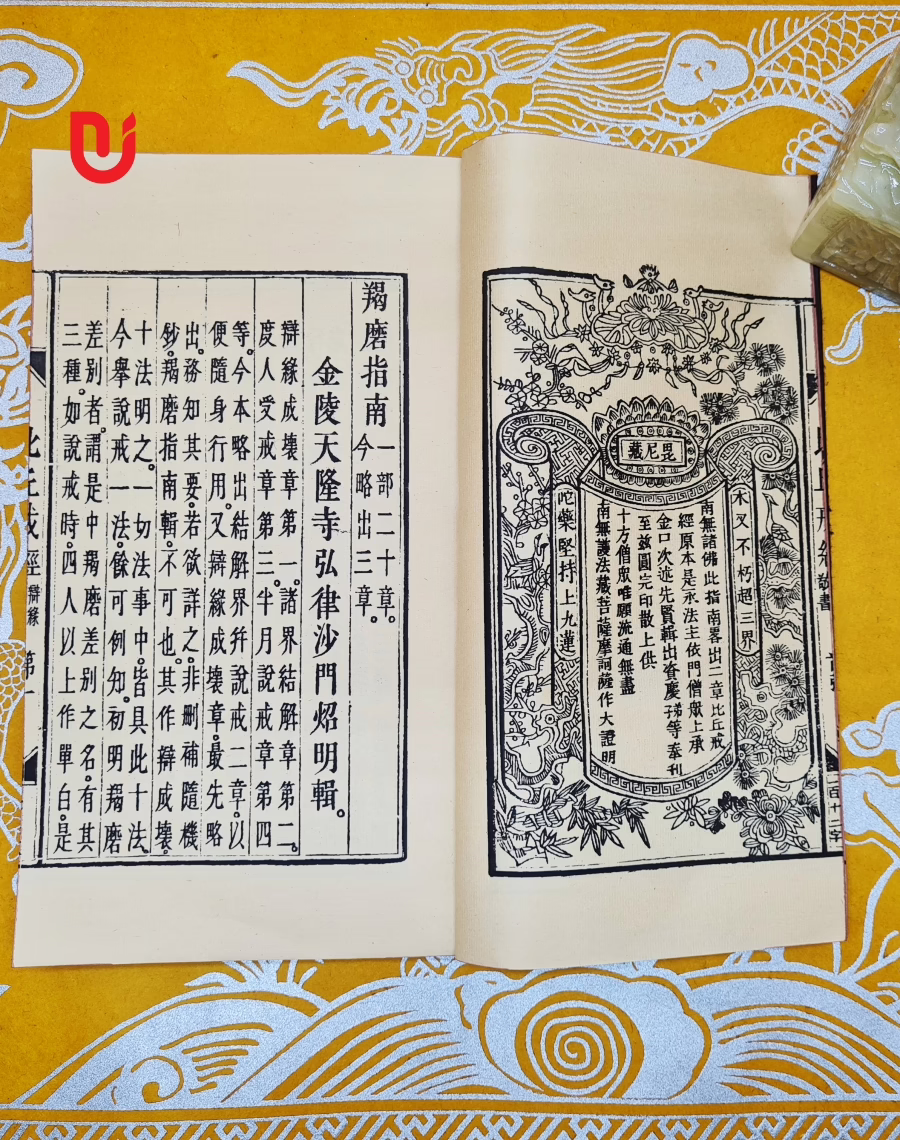 毘尼藏
木叉不朽超三界
南無諸佛此指南畧出二章比丘戒
經原本是永法主依門僧眾上承
金口次
先賢輯出資慶
等奉刊
至茲圓完印散上供
十方僧眾唯願流通無盡
南無護法藏菩薩摩訶薩作大證明
陀藥堅持上九蓮
羯磨指南一部二十章。
今略出三章。
金陵天隆寺弘律沙門炤明輯。
辯緣成壞章第一。諸界結解章第二。
度人受戒章第三。半月說戒章第四
等。今本略出結解界幷說戒二章。以
便隨身行用。又辯緣成壞章。最先略
出。務知其要。若欲詳之。非刪補隨機
鈔。羯磨指南輯。不可也。其作辯成壞。
十法明之。一切法事中。皆具此十法。
今舉說戒一法。餘可例知。初明羯磨
差別者。謂是中羯磨差別之名。有其
三種。如說戒時。四人以上作單白。是
比丘戒經 辯緣 第